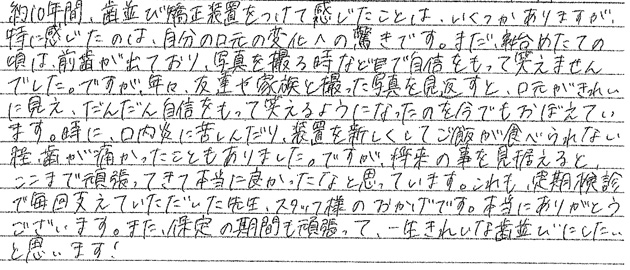 約10年間、歯並び矯正装置をつけて感じたことは、いくつかありますが、
特に感じたのは、自分の口元の変化への驚きです。まだ、始めたての
頃は、前歯が出ており、写真を撮る時など口で自信をもって笑えません
でした。ですが、年々、友達や家族と撮った写真を見返すと、口元がきれい
に見え、だんだん自信をもって笑えるようになったのを今でもおぼえてい
ます。時に、口内炎に苦しんだり、装置を新しくしてご飯が食べられない
程、歯が痛かったこともありました。ですが、将来の事を見据えると、
ここまで頑張ってきて本当に良かったなと思っています。これも、定期検診
で毎回支えていただいた先生、スタッフ様のおかげです。本当にありがとう
ございます。また、保定の期間も頑張って、一生きれいな歯並びにしたい
と思います!